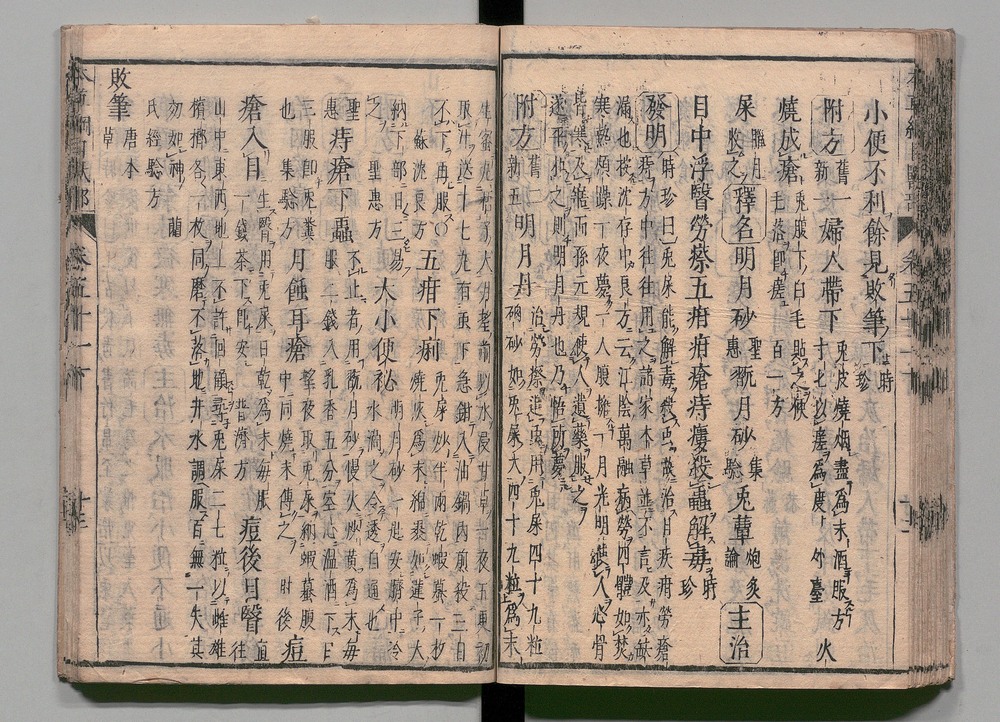 小便不利餘見敗筆下 時珍
附方 舊一新一 婦人帶下 兎皮燒烟盡爲末酒服方寸七以瘥爲度 外臺 火
燒成瘡 兎腹下白毛貼之候毛落即瘥 百一方
屎 臘月收之 釋名 明月砂 聖惠 翫月砂 集驗 兎蕈 炮炙論 主治
目中浮瞖勞瘵五疳疳瘡痔瘻殺蟲解毒 時珍
發明 時珍曰兎屎能解毒殺蟲故治目疾疳勞瘡
痔方中往往用之諸家本草並不言及亦缺
漏也按沈存中良方云江陰萬融病勞四體如焚
寒熱煩躁一夜夢一人腹擁一月光明 人心骨
皆寒及寤而孫元規使人遺藥服之
遂平扣之則明月丹也乃悟所夢
附方 舊二新五 明月丹 治勞瘵追蟲用兎屎四十九粒
硇砂如兎屎大四十九粒爲末
生蜜丸 以水浸甘草一夜五更初
取汁送下七九有蟲下急鉗入油鍋內煎殺三日
不下再服 蘇沈良方 五疳下痢 兎屎炒半兩乾蝦蟇一枚
燒灰爲末綿裹如蓮子大
納下部日三易之 聖惠方 大小便秘 明月砂一匙安臍中冷
水滴之令透自通也
聖惠 痔瘡下蟲 不止者用翫月砂慢火炒黃爲末每
服二錢入乳香五分空心溫酒下日
三服即兎糞也 集驗方 月蝕耳瘡 望夜取兎屎納蝦蟇腹
中同燒末傅之 肘後 痘
瘡入目 生瞖用兎屎日乾爲末每服
一錢茶下即安 普濟方 痘後目瞖 直往
山中東西地上不許回顧尋兎屎二七粒以雌雄
檳榔各一枚同磨不落地井水調服百無一失其
効如神 蘭氏經驗方
敗筆 唐本草